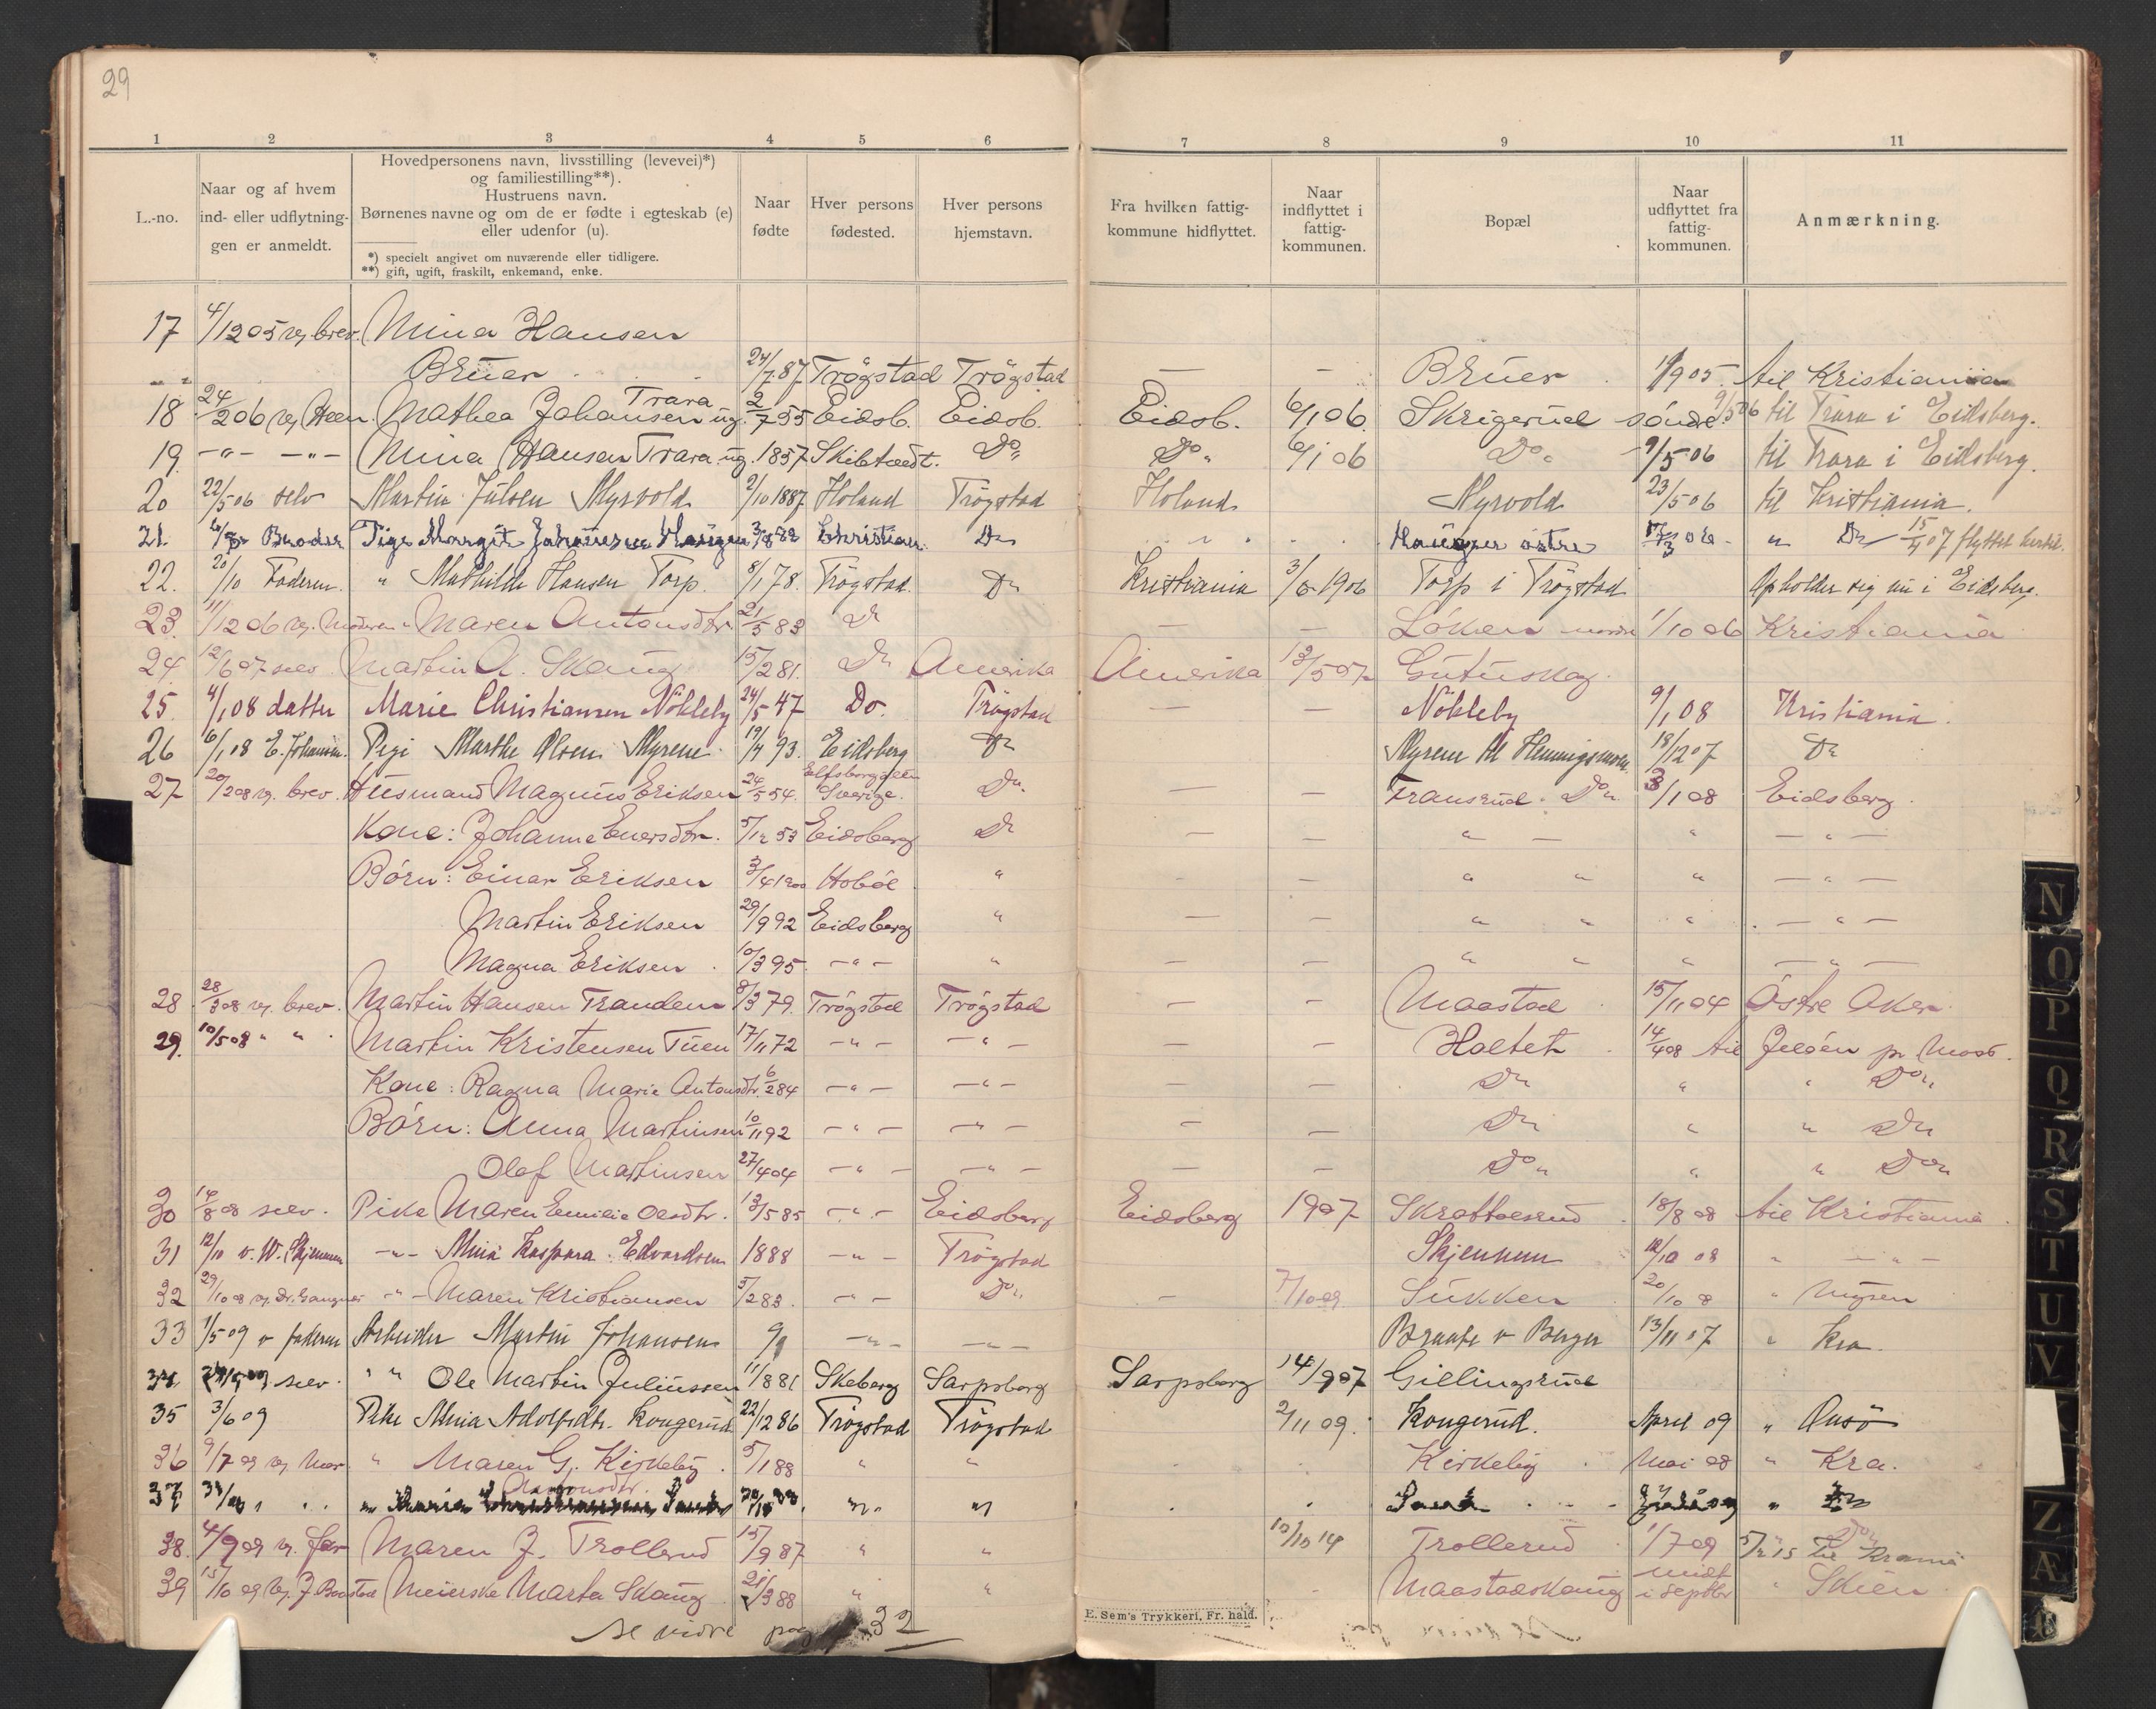 29
1 2 3 4 5 6 7 8 9 10 11
L.-no.
Naar og af hvem
ind- eller udflytnin-
gen er anmeldt.
Hovedpersonens navn, livsstilling (levevei)*)
og familiestilling**).
Hustruens navn.
Børnenes navne og om de er fødte i egteskab (e)
eller udenfor (u).
*) specielt angivet om nuværende eller tidligere.
**) gift, ugift, fraskilt, enkemand, enke.
Naar
fødte
Hver persons
fødested.
Hver persons
hjemstavn.
Fra hvilken fattig-
kommune hidflyttet.
Naar
indflyttet i
fattig-
kommunen.
Bopæl
Naar
udflyttet fra
fattig-
kommunen.
Anmærkning.
17 4/12 05 vg. brev. Mina Hansen
Brüer 24/7 87 Trögstad Trögstad — — Brüer 1/9 05. til Kristiania
18 24/2 06 vg. Heen. Mathea Johansen Trara ug. 2/7 55 Eidsb. Eidsb. Eidsb. 6/1 06. Skrigerud söndre 9/5 06 til Trara i Eidsberg.
19. -"- -"- Mina Hansen Trara ug. 1857 Skibtvedt. Do. Do. 6/1 06 Do. 9/5 06 til Trara i Eidsberg.
20 22/5 06 selv Martin Julsen Myrvold 2/10 1887 Höland Trögstad Höland Myrvold 23/5 06 til Kristiania.
21. Broder Pige Margit Johannesen Haugen 3/8 82 Christian. Do Haugen östre 06 - " Do 15/4 07 flyttet hertil.
22. 20/10 Faderen " Mathilde Hansen Torp. 8/1 78. Trögstad. Do Kristiania 3/6 1906 Torp i Trögstad Opholder sig nu i Eidsberg.
23. 11/12 06 vg. Moderen " Maren Antonsdtr 21/5 83 Do — — Löken nordre 1/10 06 Kristiania
24. 12/6 07 selv Martin A. Skaug 15/2 81. Do Amerika Amerika 13/5 07 Gutuskog.
25. 4/1 08 datter Marie Christiansen Nökleby 24/5 47 Do. Trögstad — — Nökleby 9/1 08 Kristiania.
26 6/1 08 E. Johansen. Pige Marthe Olsen Myrene 19/4 93. Eidsberg Do Myrene til Henningsmoen 18/12 07 Do
27 20/2 08 vg. brev. Husmand Magnus Eriksen 24/5 54. Elfsborg Sverige. Do. — — Transrud. Do. 3/1 08 Eidsberg.
Kone: Johanne Enersdtr. 5/12 53 Eidsberg Do — — " — " — " —
Börn: Einar Eriksen 3/4 1900 Hoböl " — — " " " — " —
Martin Eriksen 29/9 92 Eidsberg " — — " " " — " —
Magna Eriksen. 10/3 95. — " — " — — " " " — " —
28 28/3 08 vg. brev. Martin Hansen Trandem 8/3 79. Trögstad Trögstad — — Maastad 15/11 04 Östre Aker.
29. 10/5 08 " " Martin Kristensen Tuen 17/11 72 — " — — " — — — Holtet 14/4 08 til Jelöen pr Moss.
Kone: Ragna Marie Antonsdtr. 6/2 84 — " — — " — — — Do " " Do.
Börn: Anna Martinsen 10/11 92 — " — — " — — — Do " " Do
Olaf Martinsen 27/4 04 — " — — " — — — Do. " " Do
30 14/8 08 selv. Pike Maren Emilie Olsdtr. 13/5 85 — " — Eidsberg Eidsberg 1907 Skrattesrud 18/8 08 til Kristiania.
31 12/10 v. W. Skjennum -"- Mina Kaspara Edvardsen 1888 — " — Trögstad Skjennum 12/10 08 " — " —
32 29/10 08 -"- Maren Kristiansen 5/2 83. — " — Do. - 7/10 09. Sukken 20/10 8 " Mysen
33 1/5 09 v faderen Arbeider Martin Johansen — " — — " — Braate v Berger 13/11 07 " Kra.
34 selv. " " Ole Martin Juliussen 11/8 81 Skeberg Sarpsborg Sarpsborg 14/9 07 Gillingsrud
35 3/6 09 Pike Mina Adolfsdtr. Kongerud 22/12 86 Trögstad Trögstad 2/11 09. Kongerud. April 09 " Onsö
36 9/7 09 vg. Mor. " Maren G. Kirkeby. 5/1 88 " " Kirkeby. Mai 09 " Kra.
37 " "
38. 4/9 09 vg. far Maren J. Trollerud 15/9 87 " " 10/10 14 Trollerud 1/7 09 " Do. 5/2 15 til Krania
39 15/10 09 vg. J. Baastad Meierske Marta Skaug 21/3 88 " " Maastadskaug midt i septbr " Skien
se videre pag 32
E. Sem's Trykkeri, Fr. hald.
N
O
P
Q
R
S
T
U
V
Z
Æ